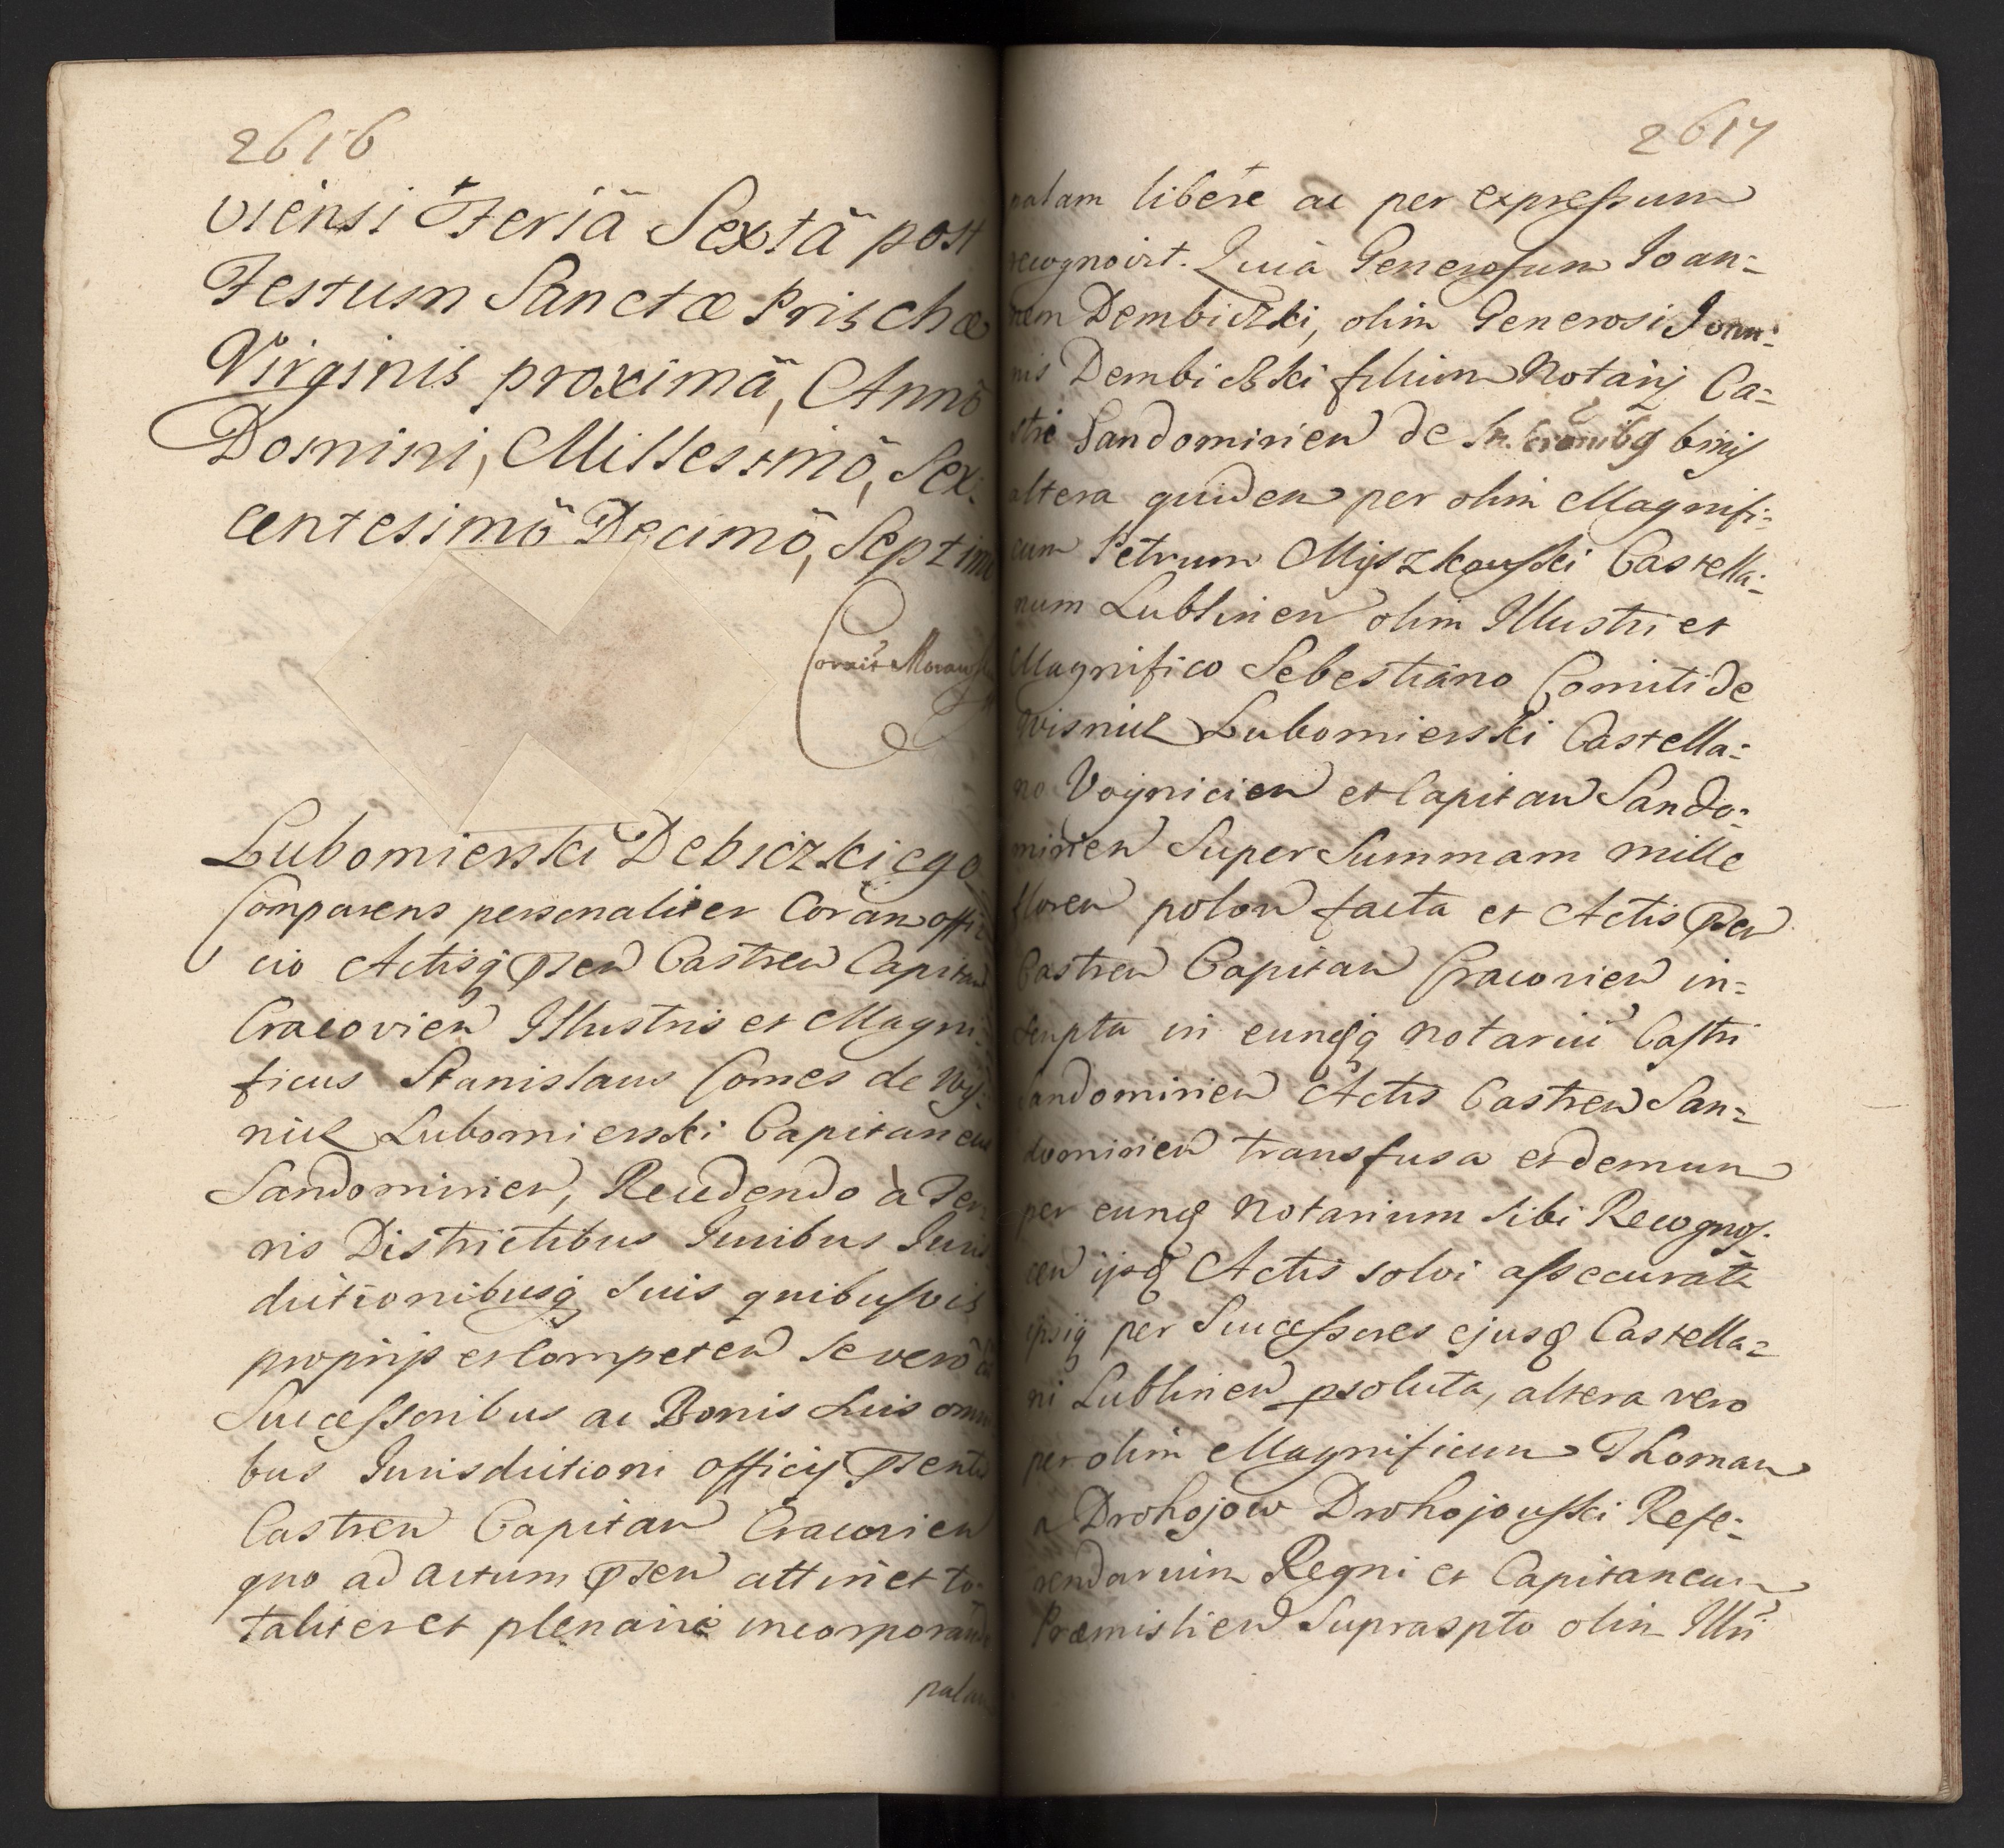 2616
viensi Feriâ Sextâ post
Festum Sanctæ Prischæ
Virginis proximâ, Annô
Domini, Millessimô, Sex:
centesimô Decimô, Septimô
Lubomierski Debiczkiego
Comparens personaliter Coram offi:
cio Actisq̃ pñsen Castren Capitan
Cracovien Illustris et Magni:
ficus Stanislaus Comes de Wis:
nicz Lubomierski Capitaneus
Sandomirien, Recedendo à Ter:
ris Districtibus Iuribus Iuris
dictionibusq̃ suis quibusvis
proprijs et Competen se vero cũ
Successoribus ac Bonis suis omni
bus Iurisdictioni officij pñsentis
Castren Capitan Cracovien
quo ad actum pñsen attinet to:
taliter et plenarie incorporando
palam
2617
palam libere ac per expressum
recognovit. Quia Generosum Ioan:
nem Dembiczki, olim Generosi Ioan:
nis Dembiczki filium Notarij Ca:
stri Sandomirien de binis
altera quidem per olim Magnifi:
cum Petrum Myszkowski Castella:
num Lublinen olim Illustri et
Magnifico Sebestiano Comiti de
Wisnicz Lubomierski Castella:
no Voynicien et Capitan Sando:
mirien Super Summam mille
floren polon facta et Actis pñsen
Castren Capitan Cracovien in:
scripta in eundq̃ notariũ Castri
Sandomirien Actis Castren San:
domirien transfusa et demum
per eund notarium sibi Recognos.
cen ijsd Actis solvi assecurata
ipsiq̃ per Successores ejusd Castella:
ni Lublinen psoluta, altera vero
per olim Magnificum Thomam
a Drohojow Drohojowski Refe:
rendarium Regni et Capitaneum
Præmislien Supraspto olim Illri